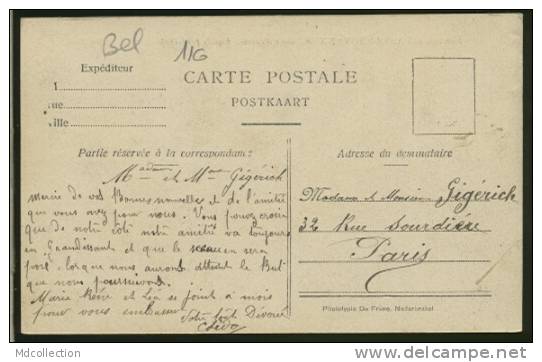 Bel
116
Expéditeur
CARTE POSTALE
POSTKAART
M
rue
ville
Partie réservée à la correspondance
Adresse du destinataire
Madame et Melle Gigérich
Merci de vos Bonnes nouvelles et de l'amitié
que vous avez pour nous. Vous pouvez croire
que de notre côté notre amitié va toujours
en Grandissant et que le sceau en sera
posé, lorsque nous aurons atteint le But
que nous poursuivons.
Maria René et Léa se joint à mois
pour vous embrasser
Votre tout Dévoué
Madame et Monsieur Gigérich
32 Rue Sourdière
Paris
Phototypie De Prins, Nederzwalm
MDCollection
www.delcampe.net